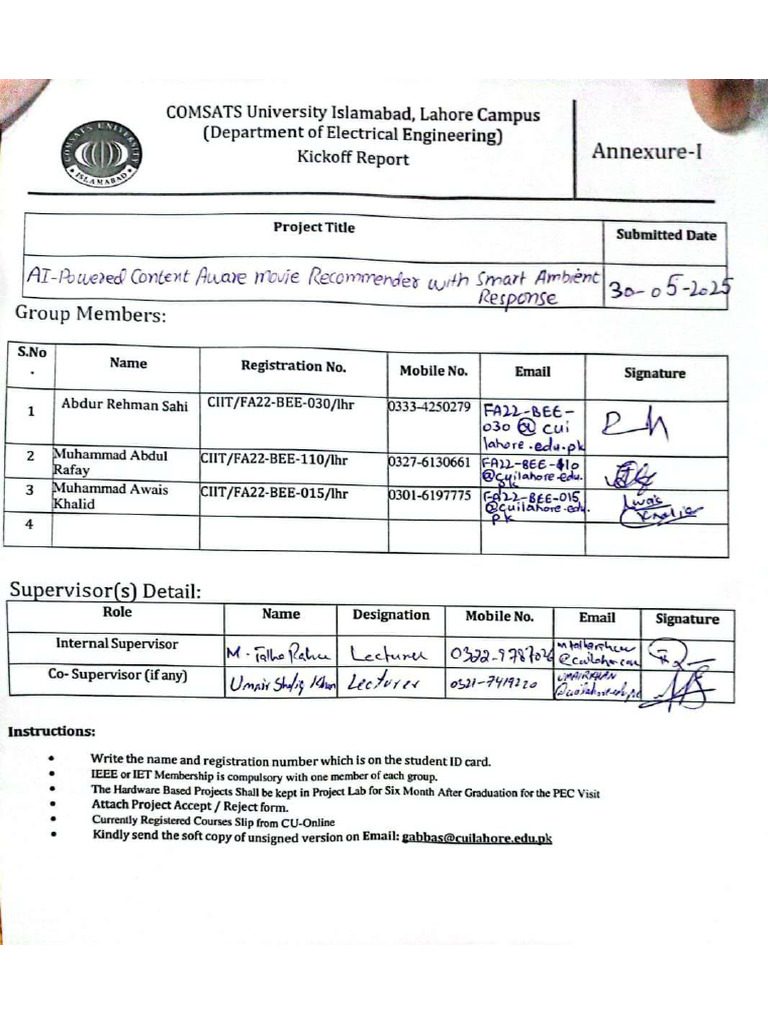 COMSATS University Islamabad, Lahore Campus
(Department of Electrical Engineering)
Kickoff Report
Annexure-I
COMSATS UNIVERSITY
ISLAMABAD
Project Title
Submitted Date
AI-Powered Content Aware Movie Recommender with Smart Ambient
Response
30-05-2025
Group Members:
S.No
.
Name
Registration No.
Mobile No.
Email
Signature
1
Abdur Rehman Sahi
CIIT/FA22-BEE-030/lhr
0333-4250279
FA22-BEE-
030@cui
lahore.edu.pk
2
Muhammad Abdul
Rafay
CIIT/FA22-BEE-110/lhr
0327-6130661
FA22-BEE-110
@cuilahore.edu.
pk
3
Muhammad Awais
Khalid
CIIT/FA22-BEE-015/lhr
0301-6197775
FA22-BEE-015
@cuilahore.edu.
pk
Awais
Khalid
4
Supervisor(s) Detail:
Role
Name
Designation
Mobile No.
Email
Signature
Internal Supervisor
M. Talha
Lecturer
Co- Supervisor (if any)
Umair Shafiq Khan
Lecturer
0321-7419220
Instructions:
• Write the name and registration number which is on the student ID card.
• IEEE or IET Membership is compulsory with one member of each group.
• The Hardware Based Projects Shall be kept in Project Lab for Six Month After Graduation for the PEC Visit
• Attach Project Accept / Reject form.
• Currently Registered Courses Slip from CU-Online
• Kindly send the soft copy of unsigned version on Email: gabbas@cuilahore.edu.pk